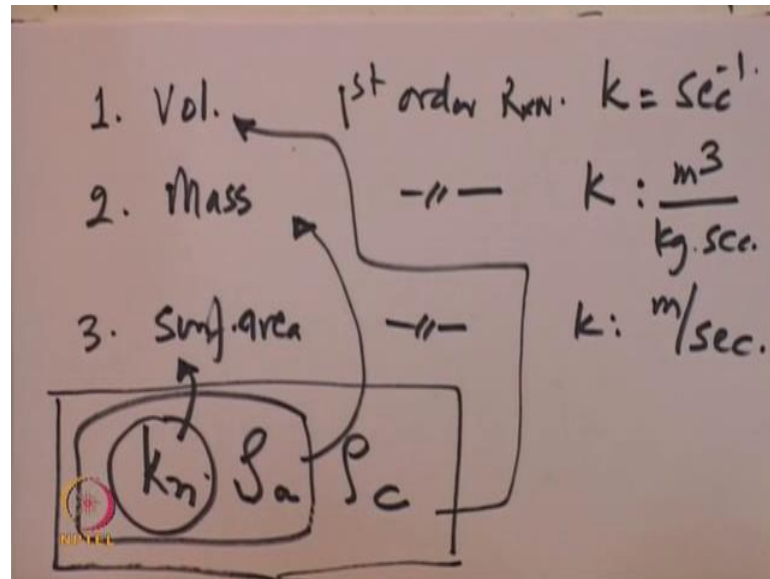 1. Vol. 1st order Rxn. k = sec⁻¹.
2. Mass —〃— k : m³/kg.sec.
3. Surf. area —〃— k : m/sec.
kn Sa ρc
NPTEL